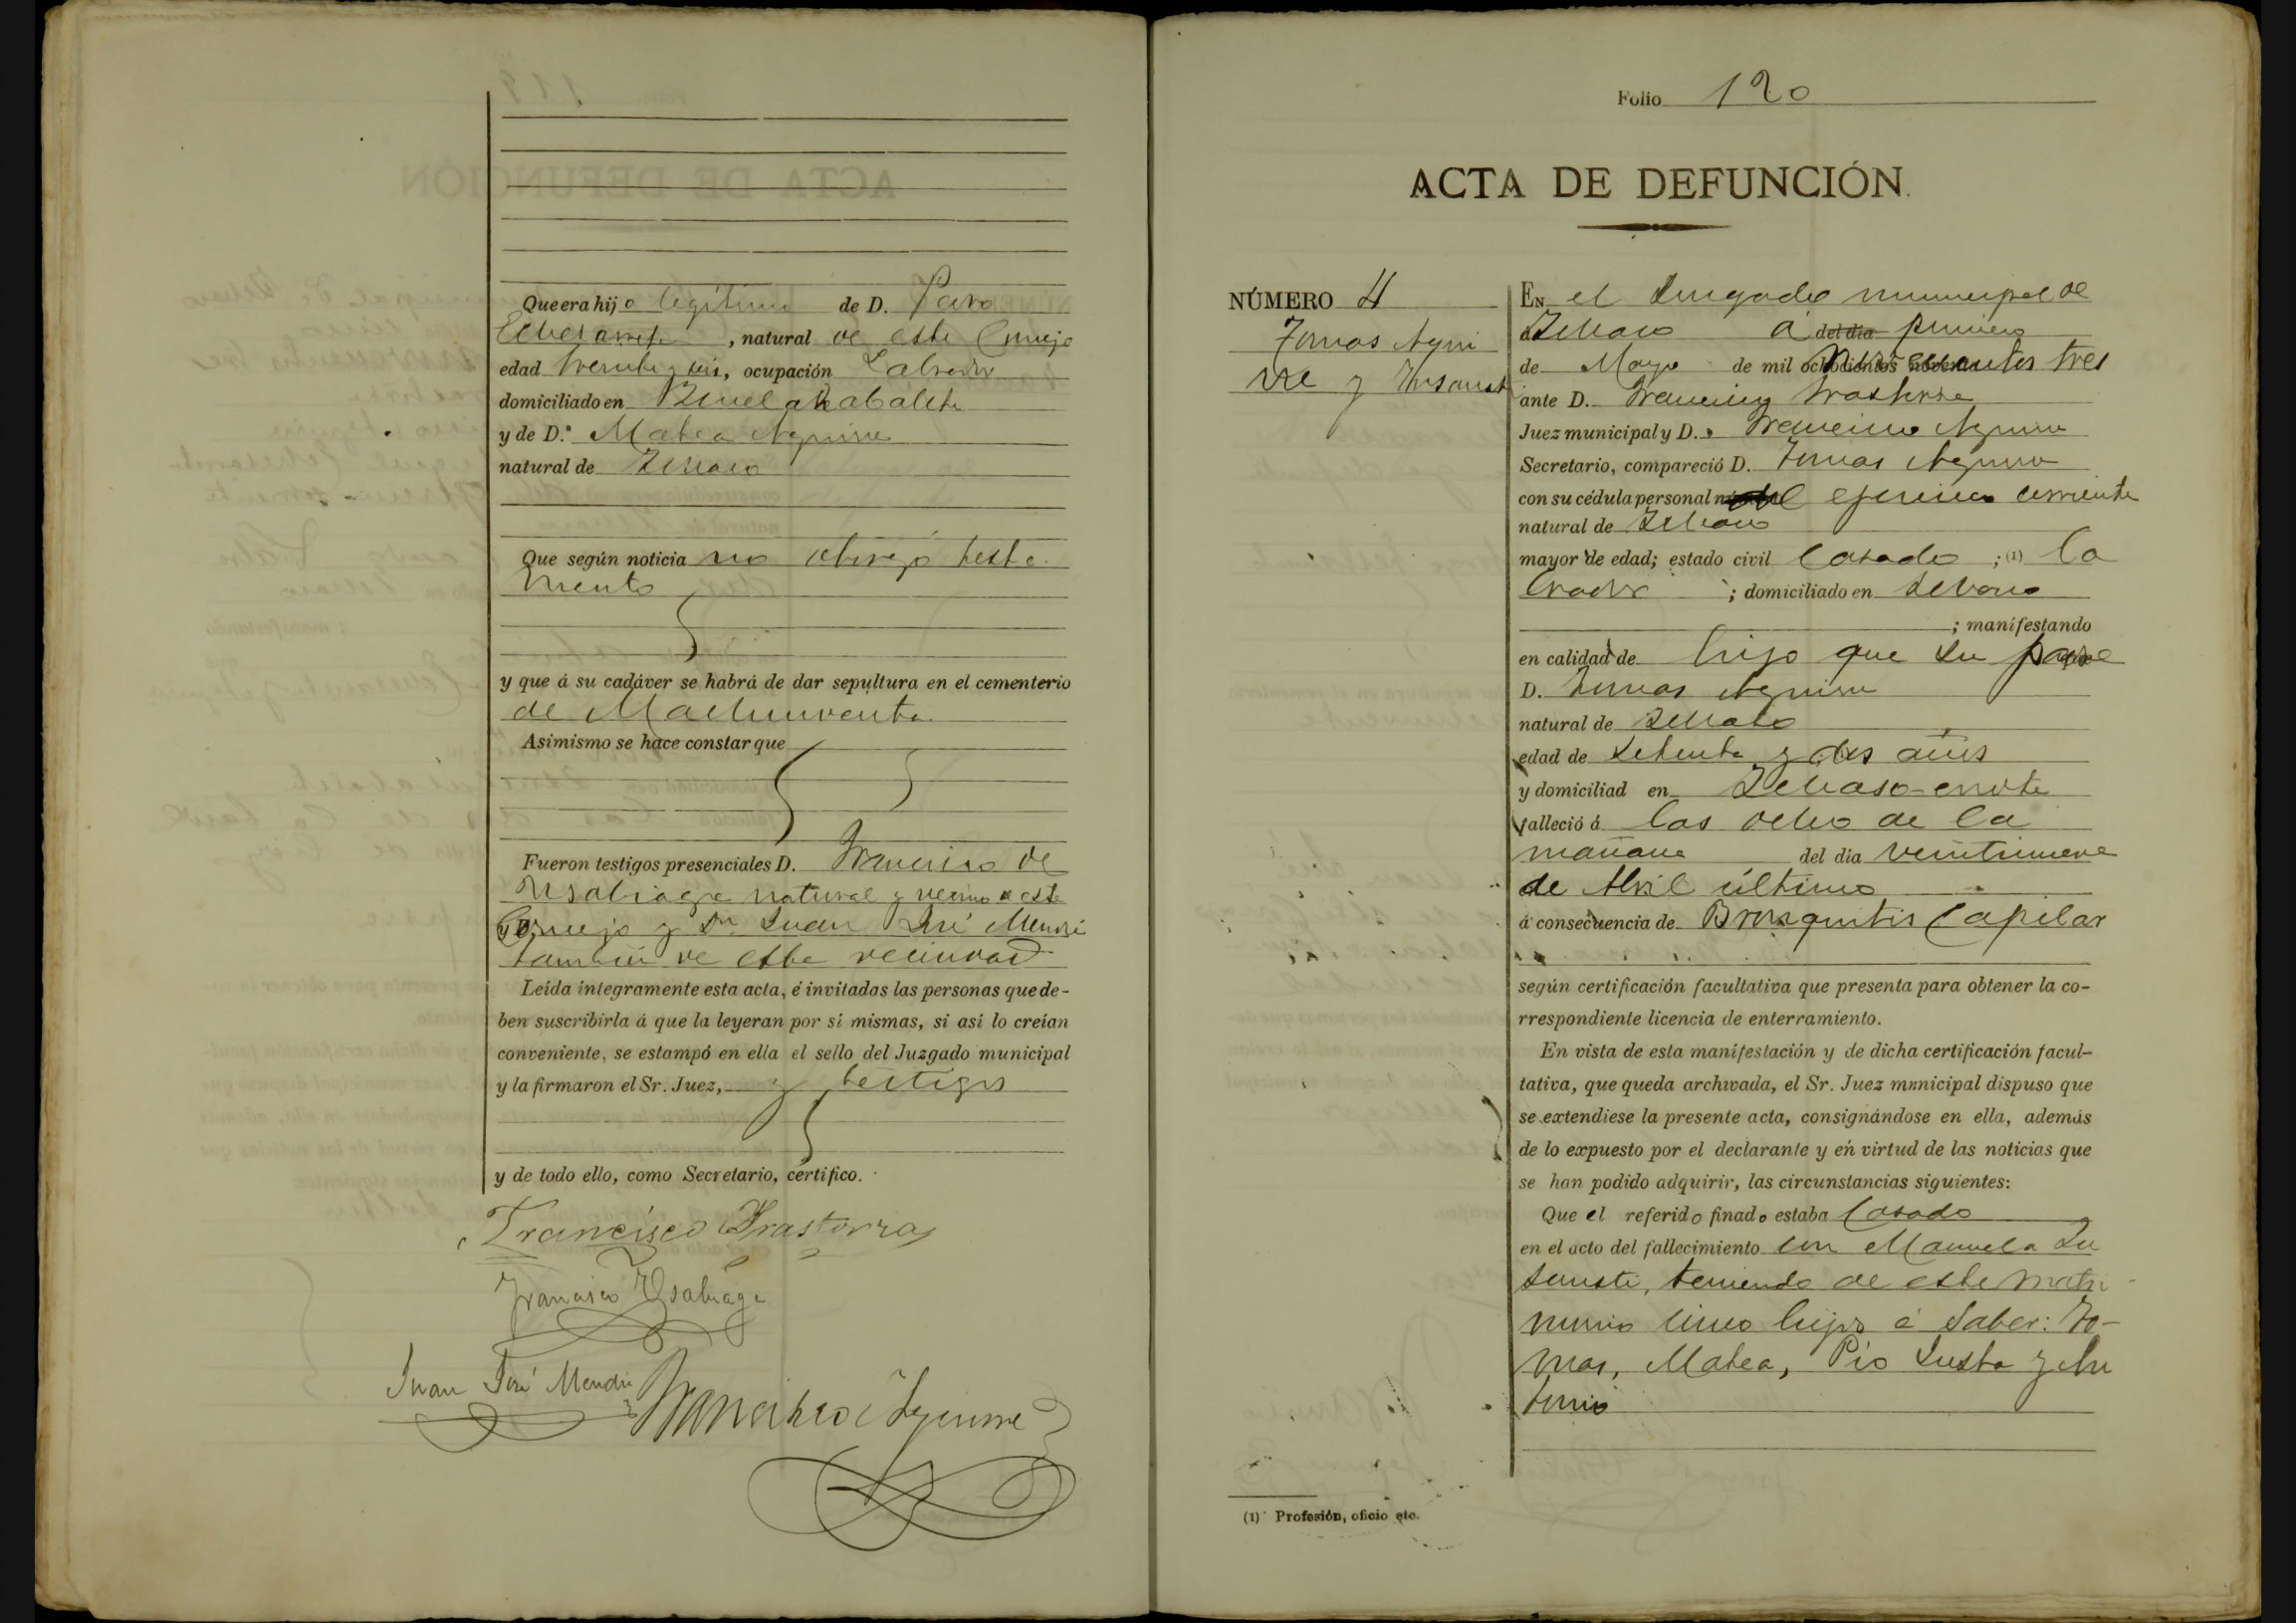 Que era hijo legitimo de D. Pavo
Echezarreta, natural de este Consejo
edad treinta y seis, ocupación Labrador
domiciliado en
y de D.ª Matea Aguirre
natural de
Que según noticia no otorgó testa
mento
y que á su cadáver se habrá de dar sepultura en el cementerio
de Machinventa
Asimismo se hace constar que
Fueron testigos presenciales D. Francisco de
Usabiaga natural y vecino de este
Consejo y Dn Juan José Mendi
tambien de esta vecindad
Leída íntegramente esta acta, é invitadas las personas que de-
ben suscribirla á que la leyeran por sí mismas, si así lo creían
conveniente, se estampó en ella el sello del Juzgado municipal
y la firmaron el Sr. Juez, y testigos
y de todo ello, como Secretario, certifico.
Francisco Irastorza
Francisco Usabiaga
Juan José Mendi
Francisco Aguirre
Folio 120
ACTA DE DEFUNCIÓN.
NÚMERO 4
Tomas Agui
rre y
EN el Jusgado municipal de
á del día primero
de Mayo de mil novecientos tres
ante D. Francisco Irastorza
Juez municipal y D. Francisco Aguirre
Secretario, compareció D. Tomas Aguirre
con su cédula personal del ejercicio corriente
natural de
mayor de edad; estado civil Casado ; (1) La
brador ; domiciliado en
; manifestando
en calidad de hijo que su padre
D. Tomas Aguirre
natural de
edad de setenta y dos años
y domiciliad en
falleció á las ocho de la
mañana del día veintinueve
de Abril último
á consecuencia de Bronquitis Capilar
según certificación facultativa que presenta para obtener la co-
rrespondiente licencia de enterramiento.
En vista de esta manifestación y de dicha certificación facul-
tativa, que queda archivada, el Sr. Juez municipal dispuso que
se extendiese la presente acta, consignándose en ella, además
de lo expuesto por el declarante y en virtud de las noticias que
se han podido adquirir, las circunstancias siguientes:
Que el referido finado estaba Casado
en el acto del fallecimiento con Manuela In
sausti, teniendo de este matri
monio cinco hijos á saber: To-
mas, Matea, Pio Justa y An
tonio
(1) Profesión, oficio etc.